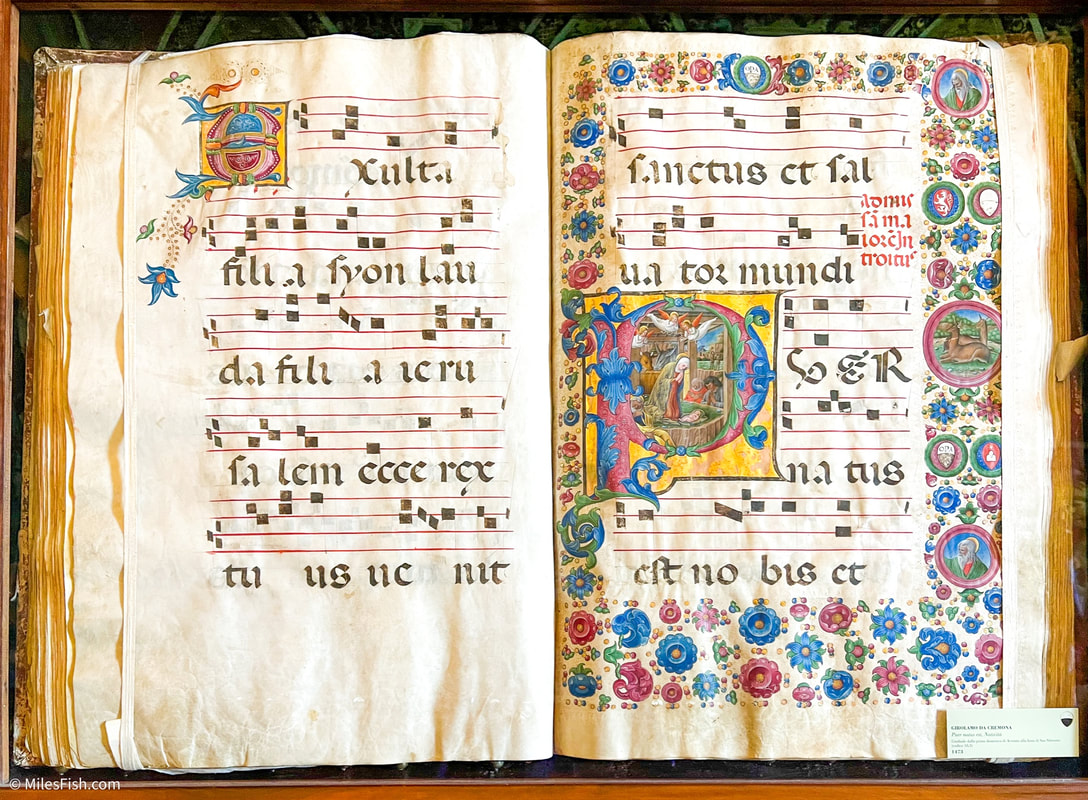 EXulta
fili a syon lau
da fili a ieru
sa lem ecce rex
tu us ue nit
sanctus et sal
ua tor mundi
ad mis
sā ma
iorē In
troitus
PUER
na tus
est no bis et
GIROLAMO DA CREMONA
Puer natus est, Natività
1473
© MilesFish.com